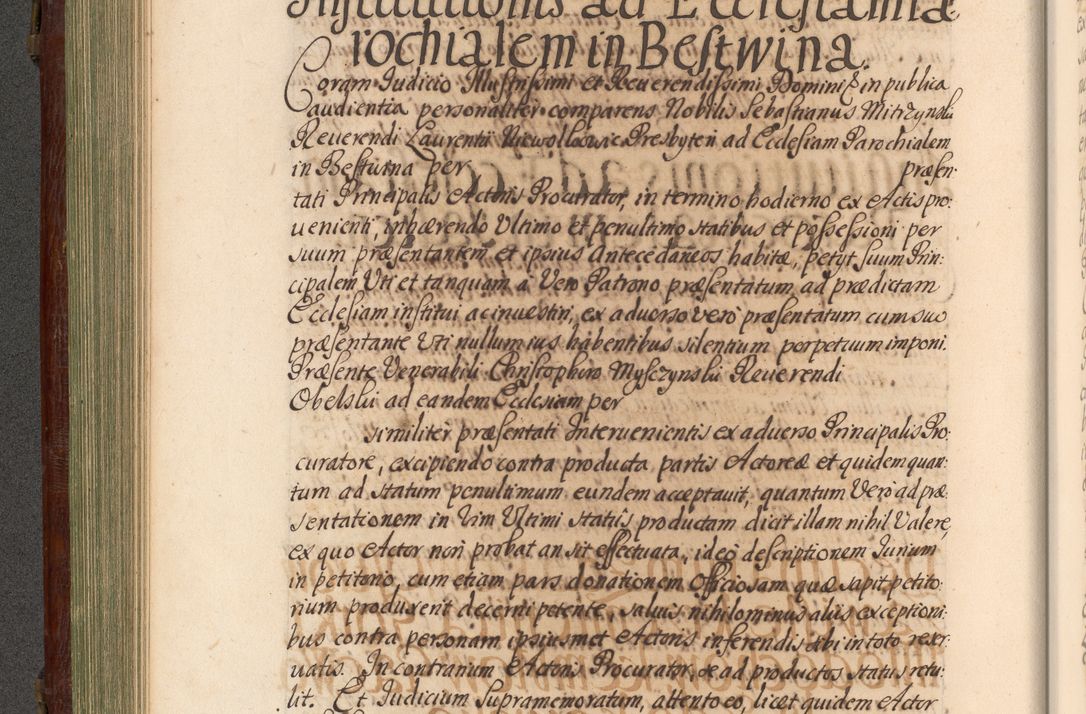 Institutionis ad Ecclesiam Pa
rochialem in Bestwina.
Coram Judicio Illustrissimi et Reuerendissimi Domini & in publica
audientia personaliter comparens Nobilis Sebastianus Mitrzynski
Reuerendi Laurentii Presbyteri ad Ecclesiam Parochialem
in Bestwina per præsen:
tati Principalis Actoris Procurator, in termino hodierno ex Actis pro:
uenienti, inhærendo Ultimo et penultimo statibus et possessioni per
suum præsentantem et ipsius Antecedaneos habitæ, petyt suum Prin:
cipalem Uti et tanquam a Vero Patrono præsentatum, ad prædictam
Ecclesiam institui ac inuestiri, ex aduerso vero præsentatum cum suo
præsentante Uti nullum ius habentibus silentium perpetuum imponi.
Præsente Venerabili Christophoro Mysczynski Reuerendi
Obelski ad eandem Ecclesiam per
similiter præsentati Interuenientis ex aduerso Principalis Pro:
curatore, excipiendo contra producta partis Actoreæ et quidem quan:
tum ad statum penultimum eundem acceptauit, quantum Vero ad præ:
sentationem in Vim Ultimi status productam dicit illam nihil Valere,
ex quo Actor non probat an sit effectuata, ideo descriptionem Jurium
in petitorio, cum etiam pars donationem Officiosam quæ sapit petito:
rium produxerit decerni petente, saluis nihilominus aliis exceptioni:
bus contra personam ipsiusmet Actoris inferendis sibi in toto reser:
uatis. In contrarium Actoris Procurator, se ad productos status retu:
lit. Et Judicium Supramemoratum, attento eo, licet quidem Actor